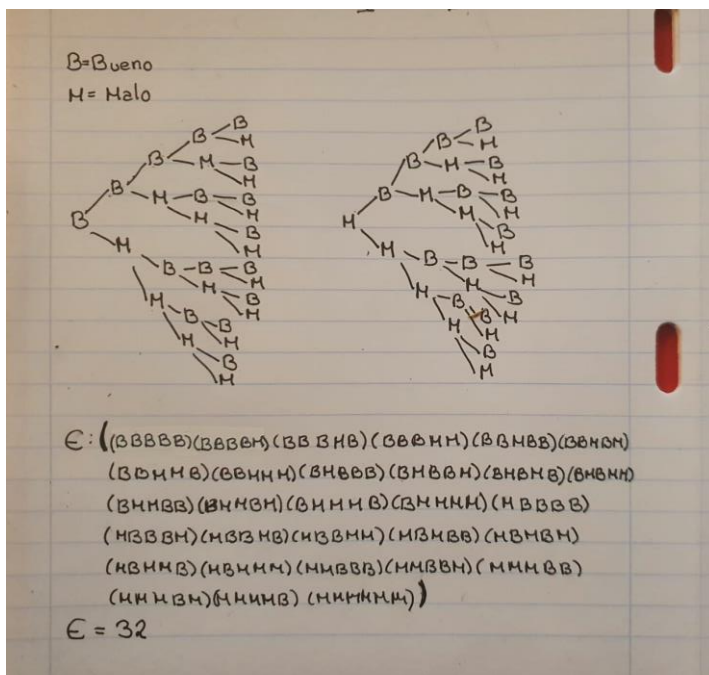 B=Bueno
M= Malo
B
B M
B M B
M
B M B B
M M
B B
M M
B B B
M
M M B
M
B B
M M
B
M
B
B M
B M B
M
B M B B
M M
M B
M M
B B B
M M
M B B
B M
M M
B
M
E:((BBBBB)(BBBBM)(BBBMB)(BBBMM)(BBMBB)(BBMBM)
(BBMMB)(BBMMM)(BMBBB)(BMBBM)(BMBMB)(BMBMM)
(BMMBB)(BMMBM)(BMMMB)(BMMMM)(MBBBB)
(MBBBM)(MBBMB)(MBBMM)(MBMBB)(MBMBM)
(MBMMB)(MBMMM)(MMBBB)(MMBBM)(MMMBB)
(MMMBM)(MMMMB)(MMMMM))
E = 32